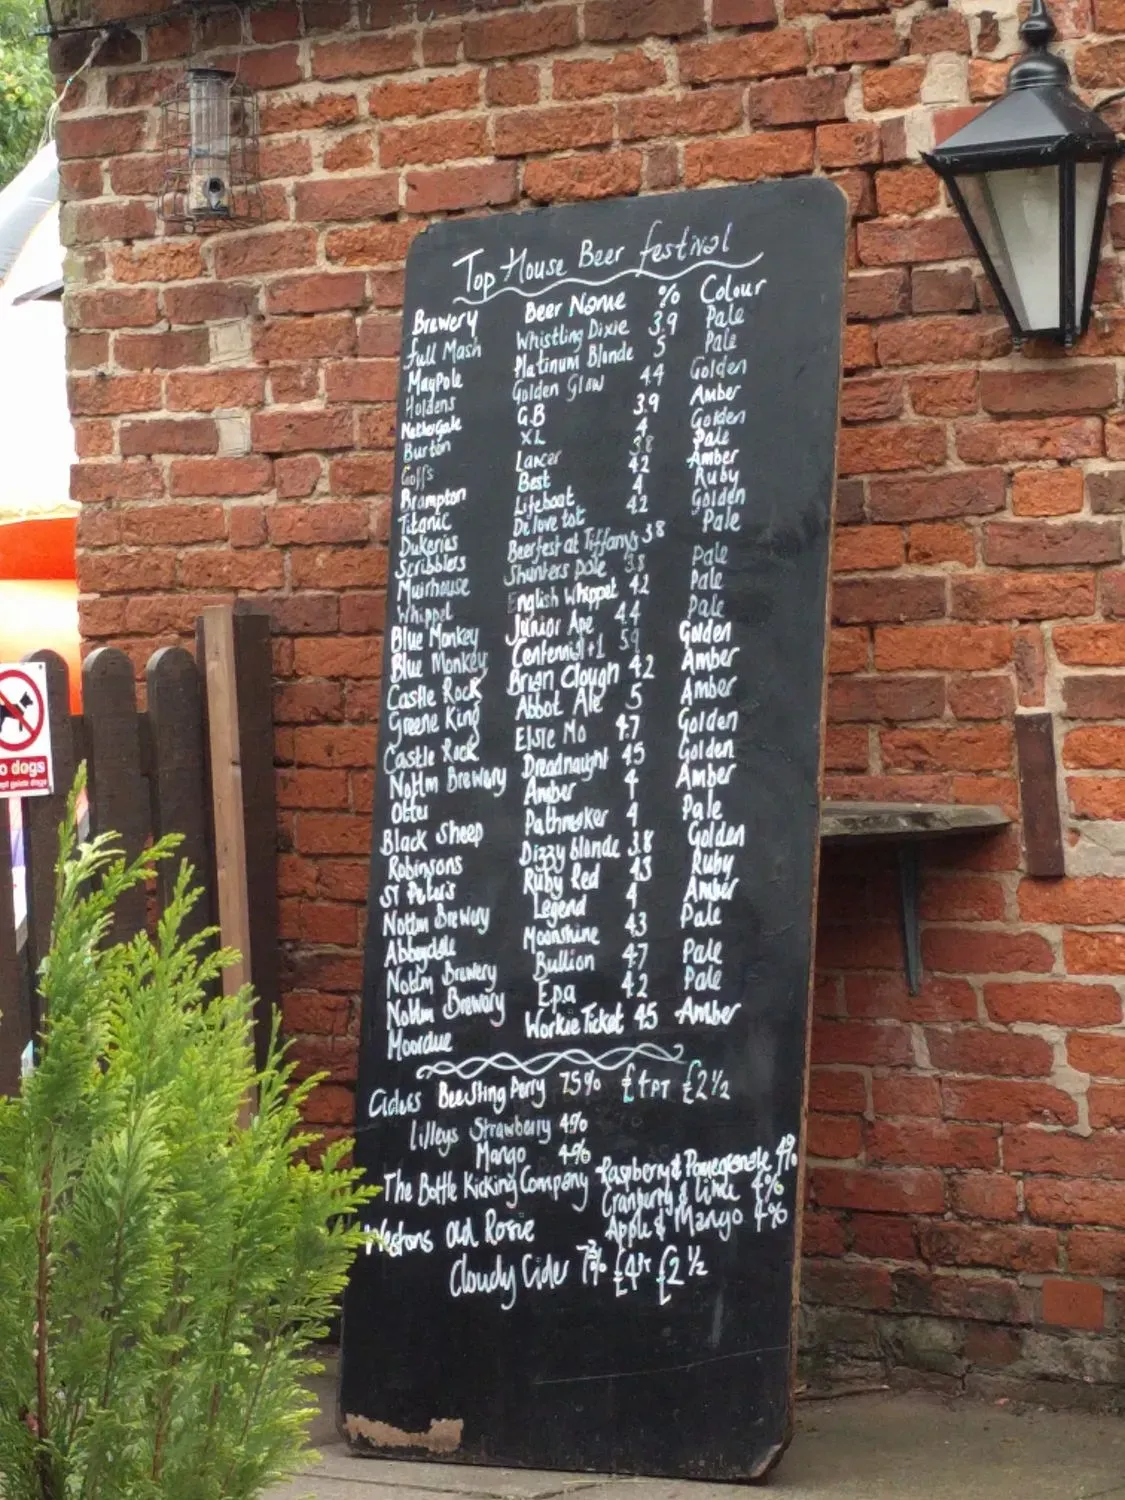 Top House Beer festival
Brewery Beer Name % Colour
Full Mash Whistling Dixie 3.9 Pale
Magpole Platinum Blonde 5 Pale
Holdens Golden Glow 4.4 Golden
Nethergate G.B 3.9 Amber
Burton XL 4 Golden
Goffs Lancer 3.8 Pale
Brampton Best 42 Amber
Titanic Lifeboat 4 Ruby
Dukeries De love tot 42 Golden
Scribblers Beerfest at Tiffanys 38 Pale
Muirhouse Shunters pole 38 Pale
Whippet English Whippet 42 Pale
Blue Monkey Junior Ape 44 Pale
Blue Monkey Centennial +1 59 Golden
Castle Rock Brian Clough 42 Amber
Greene King Abbot Ale 5 Amber
Castle Rock Elsie Mo 4.7 Golden
Nottm Brewery Dreadnaught 45 Golden
Otter Amber 4 Amber
Black Sheep Pathmaker 4 Pale
Robinsons Dizzy blonde 3.8 Golden
St Peters Ruby Red 43 Ruby
Nottm Brewery Legend 4 Amber
Abbeydale Moonshine 43 Pale
Nottm Brewery Bullion 47 Pale
Nottm Brewery Epa 42 Pale
Moordue Workie Ticket 45 Amber
Ciders BeeSting Perry 75% £4PT £2½
Lilleys Strawberry 4%
Mango 4%
The Bottle Kicking Company Raspberry & Pomegranate 4%
Cranberry & Lime 4%
Westons Old Rosie Apple & Mango 4%
Cloudy Cider £4PT £2½
o dogs